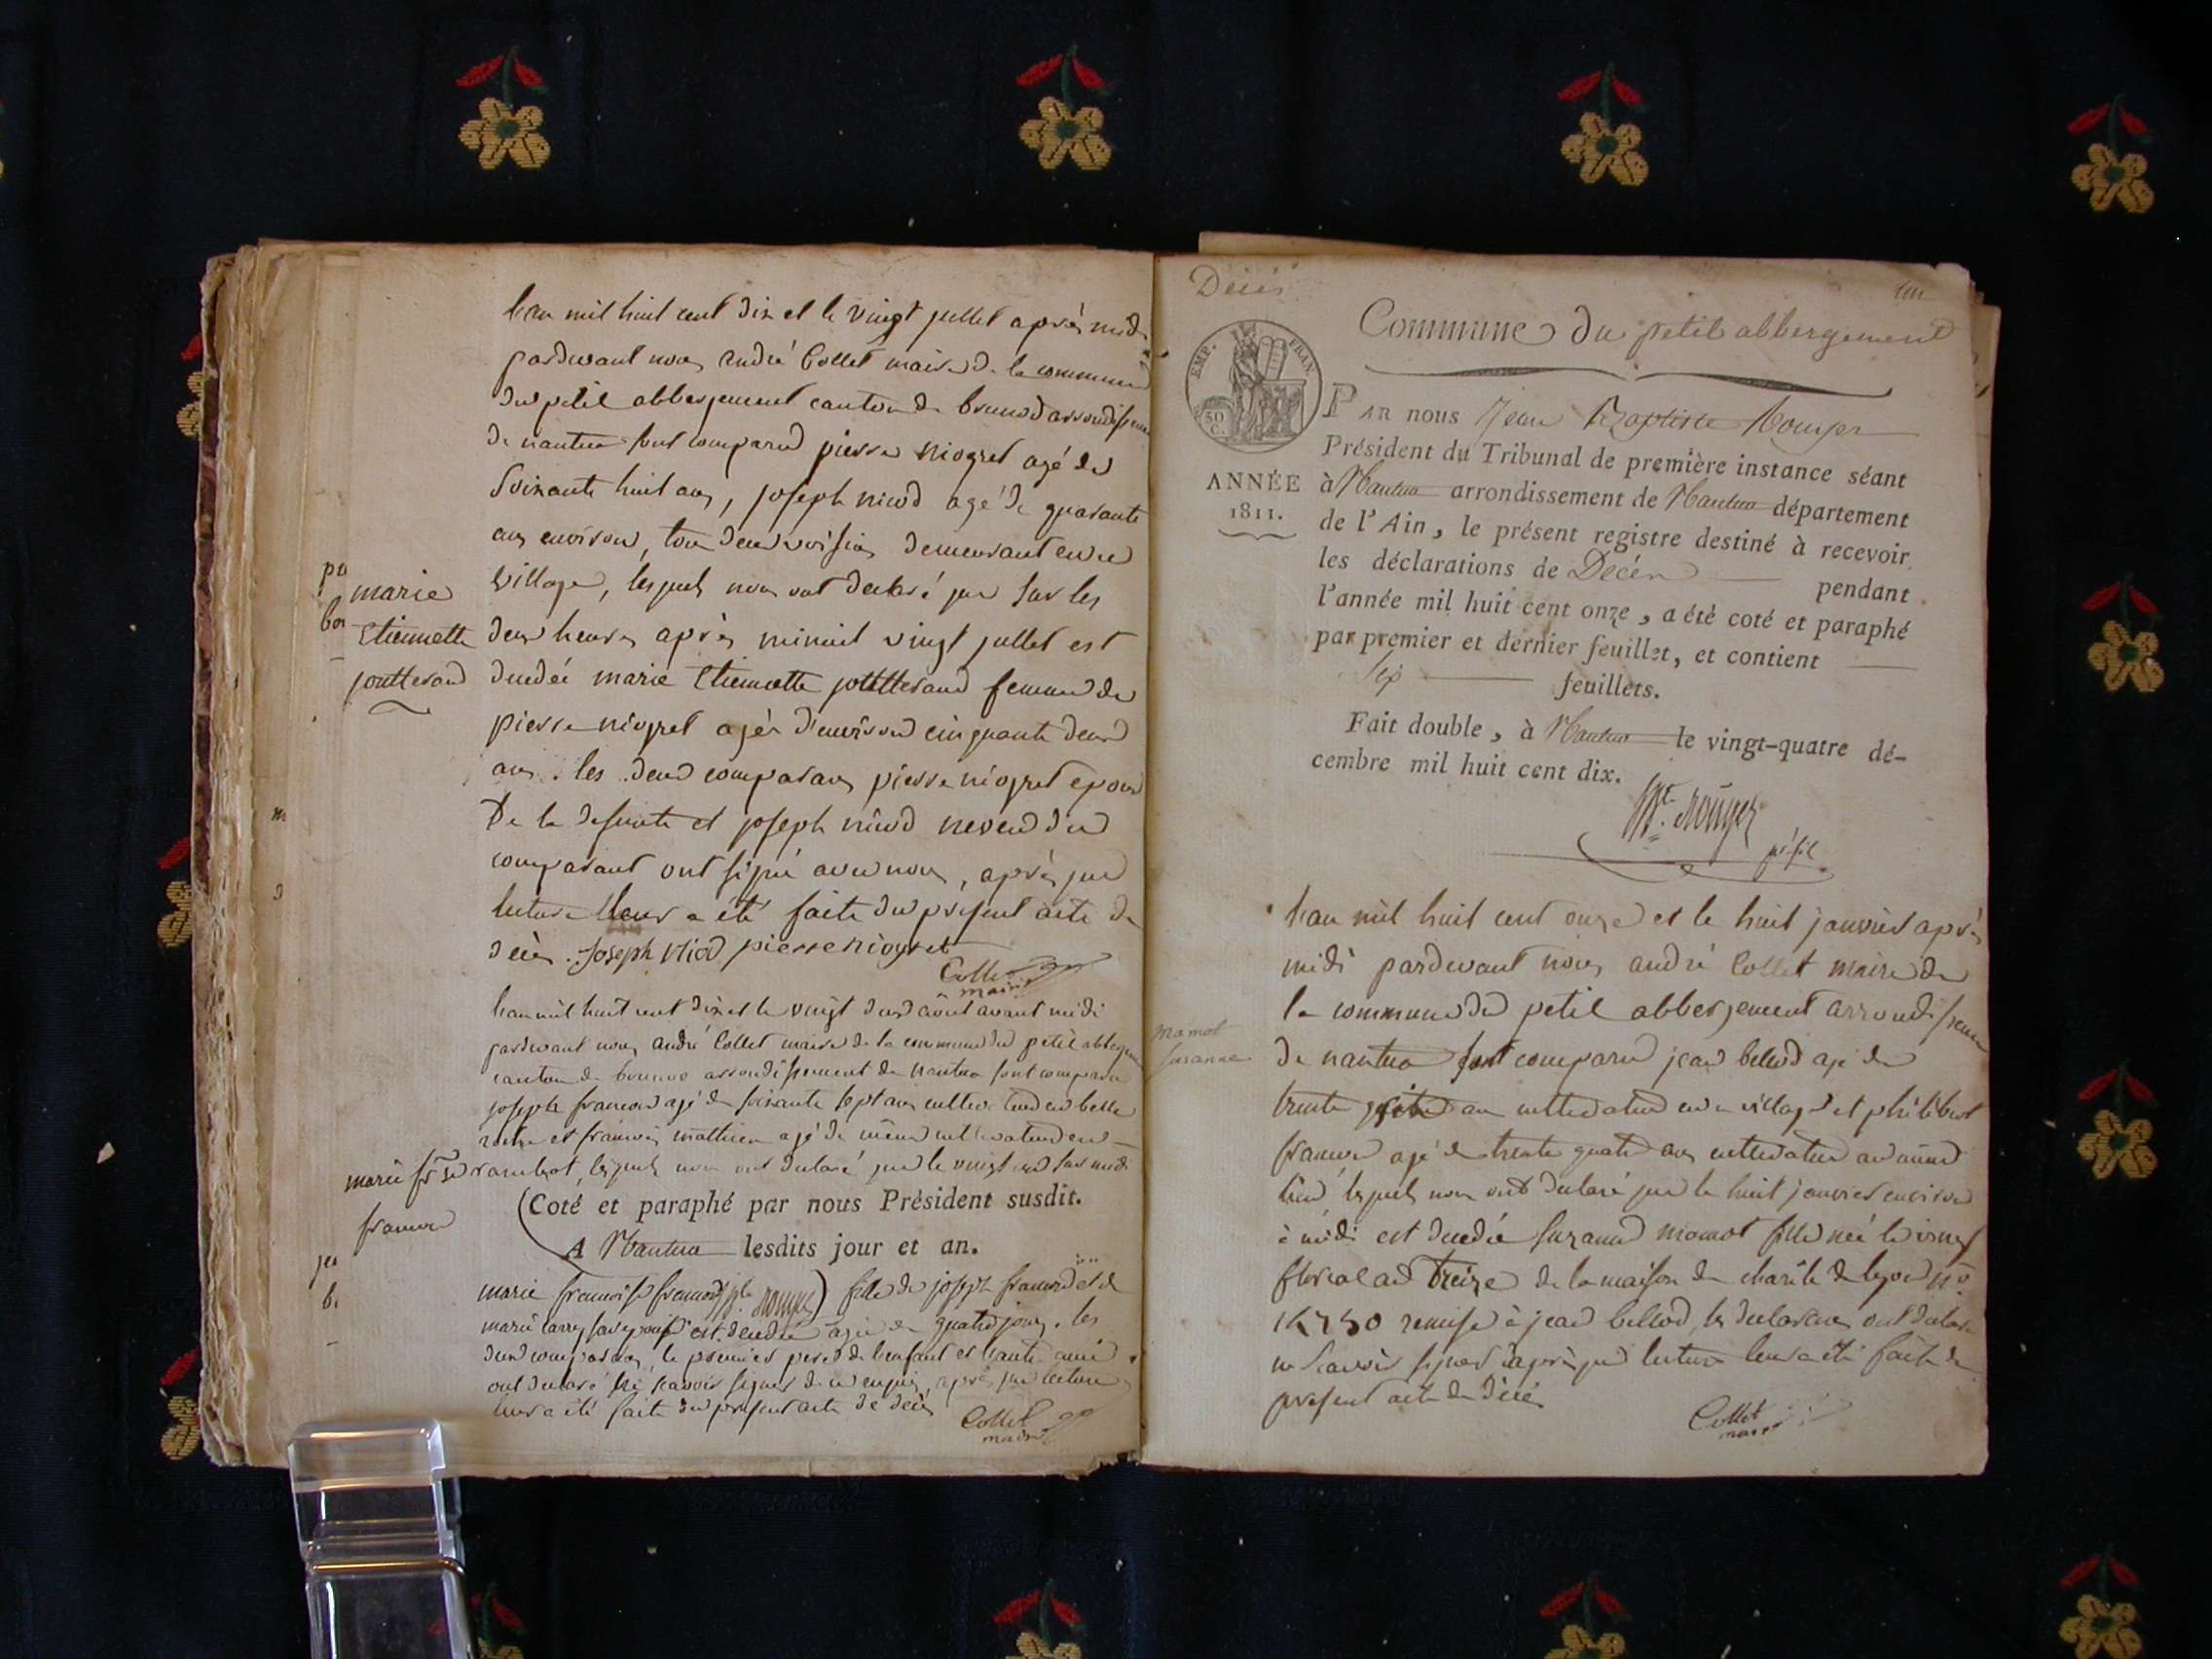 l'an mil huit cent dix et le vingt jullet après midi
pardevant nous andré Collet maire de la commune
du petit abbergement canton de brenod arrondissement
de nantua sont comparu pierre niogret agé de
soixante huit ans, joseph niod agé de quarante
ans environ, tous deux voisins demeurant en ce
village, lesquels nous ont declaré que sur les
marie
Etiennette
joutterand
deux heures après minuit vingt jullet est
decedée marie Etiennette joutterand femme de
pierre niogret agée d'environ cinquante deux
ans. les deux comparans pierre niogret epoux
De la defunte et joseph niod neveu du
comparant ont signé avec nous, après que
lecture leur a été faite du present acte de
décès. Joseph Niod pierre niogret
Collet
maire
l'an mil huit cent dix et le vingt deux août avant midi
pardevant nous andré Collet maire de la commune du petit abbergement
canton de brenod arrondissement de nantua sont comparu
joseph francon agé de soixante sept ans cultivateur en belle
et francois mathieu agé de même cultivateur en
lesquels nous ont declaré que le vingt un sur midi
marie frse
(Coté et paraphé par nous Président susdit.
A Nantua lesdits jour et an.
marie francoise fille de joseph et de
marie est decedée agée de quatre jours. les
deux comparans, le premier pere de l'enfant et l'autre ami
ont declaré ne scavoir signer de ce enquis, après que lecture
leur a été faite du present acte de décès
Collet
maire
Décès
Commune du petit abbergement
EMP. FRAN.
50 C.
ANNÉE
1811.
PAR nous Jean Baptiste Rouyer
Président du Tribunal de première instance séant
à Nantua arrondissement de Nantua département
de l'Ain, le présent registre destiné à recevoir
les déclarations de Décès pendant
l'année mil huit cent onze, a été coté et paraphé
par premier et dernier feuillet, et contient
Sept feuillets.
Fait double, à Nantua le vingt-quatre dé-
cembre mil huit cent dix.
Bte. Rouyer
l'an mil huit cent onze et le huit janvier après
midi pardevant nous andré Collet maire de
la commune du petit abbergement arrondissement
mamot
suzanne
de nantua sont comparu jean bellod agé de
trente ans cultivateur en ce village et philibert
francon agé de trente quatre ans cultivateur au même
lieu lesquels nous ont declaré que le huit janvier environ
à midi est decedée suzanne mamot fille née le
floreal an treize de la maison de charité de lyon N°
remise à jean bellod, les declarans ont declaré
ne scavoir signer après que lecture leur a été faite du
present acte de décès
Collet
maire